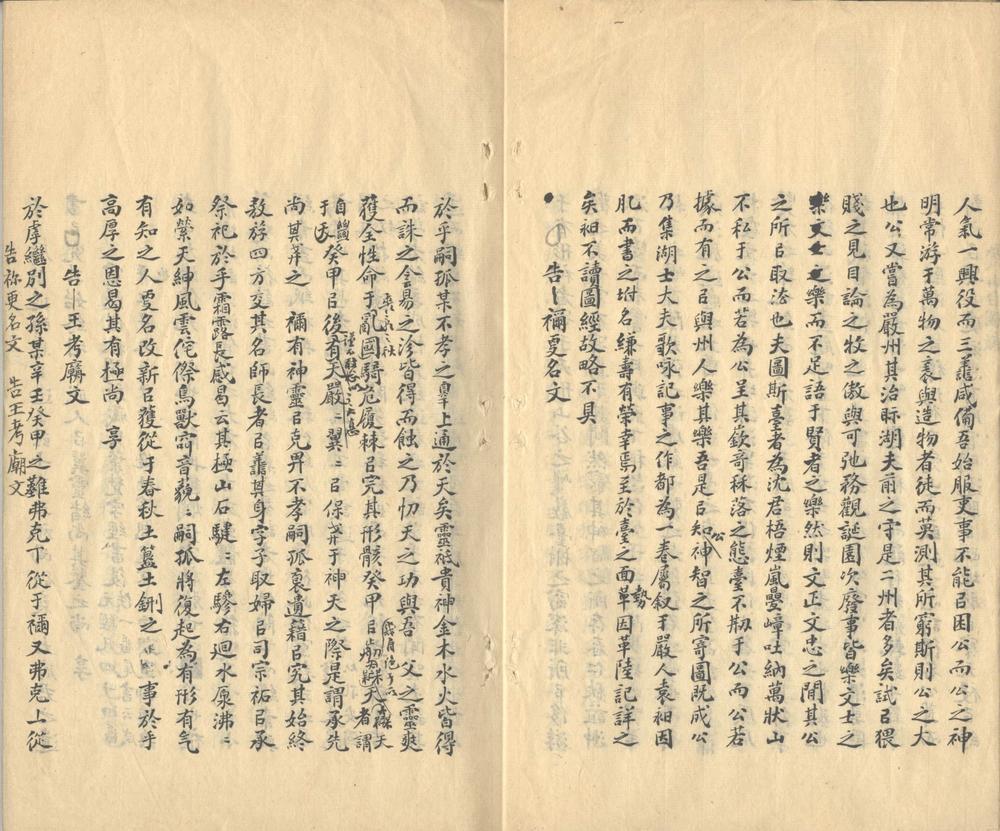 人氣一興役而三善咸備吾始服吏事不能㠯困公而公之神
明常游于萬物之表與造物者徒而莫測其所窮斯則公之大
也公又嘗為嚴州其治眎湖夫前之守是二州者多矣試㠯猥
賤之見目論之牧之傲與可弛務觀誕園次廢事皆樂文士之
樂而不足語于賢者之樂然則文正文忠之間其公
之所㠯取法也夫圖斯臺者為沈君梧煙嵐疊嶂吐納萬狀山
不私于公而若為公呈其嶔奇秝落之態臺不勑于公而公若
據而有之㠯與州人樂其樂吾是㠯知公神智之所寄圖既成公
乃集湖士大夫歌咏記事之作都為一卷屬叙王嚴人袁昶因
肊而書之坿名縑壽有榮幸焉至於臺之面勢革因革陸記詳之
矣昶不讀圖經故略不具
告禰更名文
於乎嗣孤某不孝之辠上通於天矣靈祇貴神金木水火皆得
而誅之会昜之沴皆得而蝕之乃忉天之功與吾父之靈爽
獲全性命于亂國騎危履棘㠯完其形骸癸甲㠯
癸甲㠯後有天嚴〻翼〻㠯保于神天之際是謂承先
尚其𢍏之禰有神靈㠯克畀不孝嗣孤裒遺籍㠯究其始終
敖游四方交其名師長者㠯善其身字子取婦㠯司宗祏㠯承
祭祀於乎霜露長感曷云其極山石騝〻左驂右迴水原沸〻
如縈天紳風雲侘傺鳥獸窅音藐〻嗣孤將復起為有形有气
有知之人更名改新㠯獲從于春秋土簋土鉶之事於乎
高厚之恩曷其有極尚享
告王考廟文
於虖繼別之孫某辛壬癸甲之難弗克下從于禰又弗克上從
告祢更名文 告王考廟文